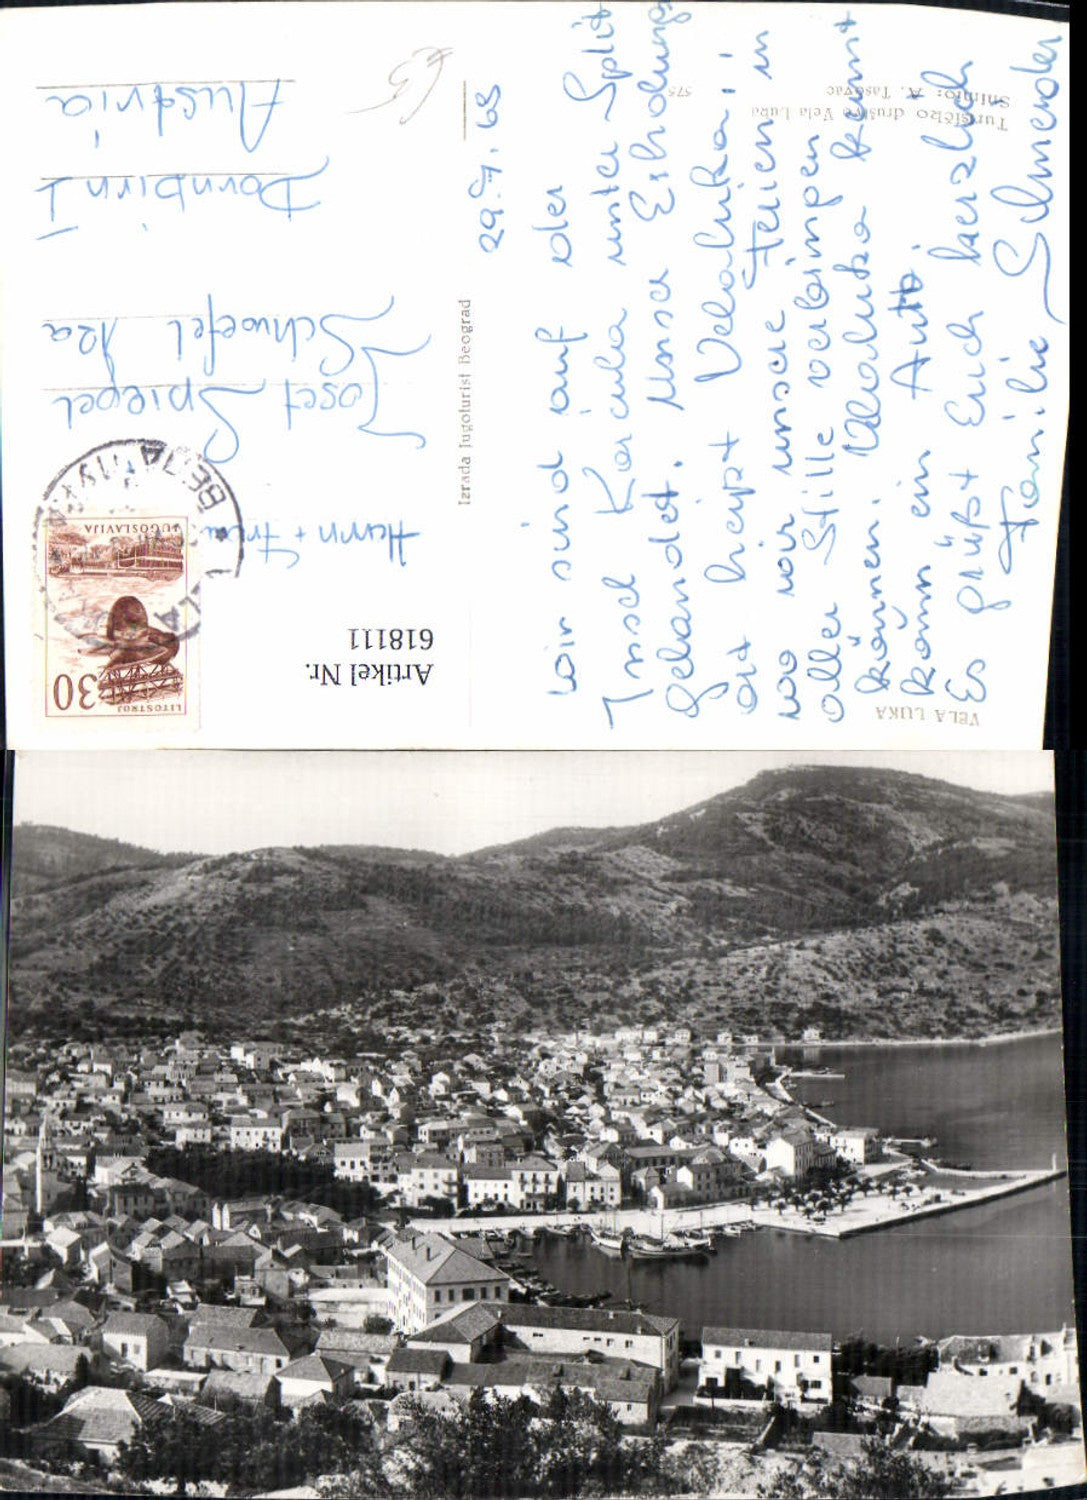 VELA LUKA
29.7.63
Wir sind auf der
Insel Korcula unter Split
gelandet. Unser Erholungs
ort heipt Velaluka in
wo wir unsere Ferien in
aller Stille verbringen
können. Velaluka kennt
kaum ein Auto.
Es grüßt Euch herzlich
Familie
Turističko društvo Vela Luka
Snimio: A. Tasovac
575
Izrada Jugoturist Beograd
Artikel Nr.
618111
LITOSTROJ
30
JUGOSLAVIJA
VELA
ВЕЛА ЛУКА
Herrn + Frau
Josef Spiegel
Schwefel 12a
Dornbirn I
Austria